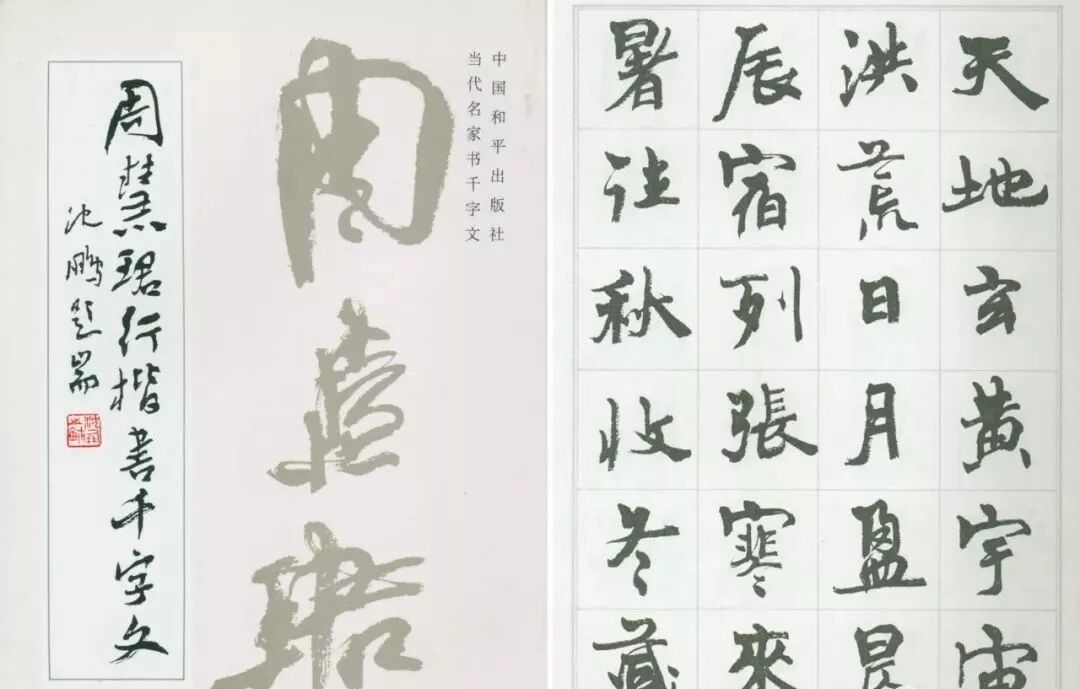 中国和平出版社
当代名家书千字文
周慧珺
周慧珺行楷書千字文
沈鹏题耑
天地玄黄宇宙
洪荒日月盈昃
辰宿列張寒來
暑往秋收冬藏